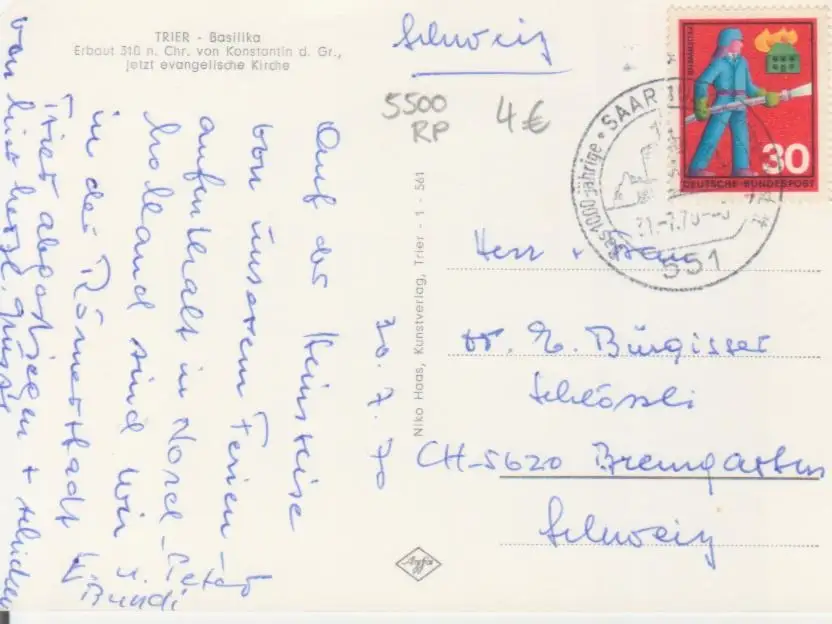 TRIER - Basilika
Erbaut 310 n. Chr. von Konstantin d. Gr.,
jetzt evangelische Kirche
Schweiz
5500
RP
4€
FEUERWEHR
30
DEUTSCHE BUNDESPOST
SAAR
Das 1000-jährige
21.-7.70
551
Auf der Heimreise
von unserem Ferien-
aufenthalt in Nord-
holland sind wir
in der Römerstadt
Trier abgestiegen + schicken
von hier herzl. Grüsse
u.
Bundi
30.7.70
Niko Haas, Kunstverlag, Trier - 1 - 561
Herr + Frau
Dr. E. Bürgisser
Schlössli
CH-5620 Bremgarten
Schweiz
Agfa